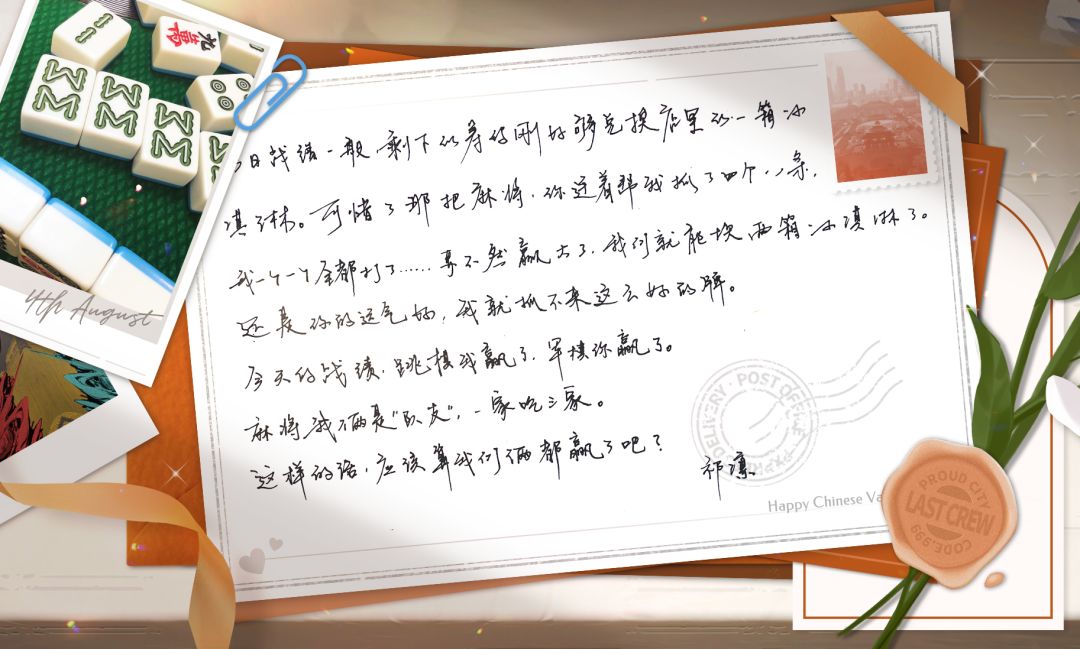 日战绩一般,剩下的筹码刚好够兑换店里的一箱冰
淇淋。可惜了那把麻将,你连着帮我抓了四个八条,
我一个一个全都打了……要不然赢大了,我们就能换两箱冰淇淋了。
还是你的运气好,我就抓不来这么好的牌。
今天的战绩,跳棋我赢了,军棋你赢了。
麻将我俩是“队友”,一家吃三家。
这样的话,应该算我们俩都赢了吧?
祁
4th August
DELIVERY
POST OFFICE
Happy Chinese Va
PROUD CITY
LAST CREW
CODE:999
九萬